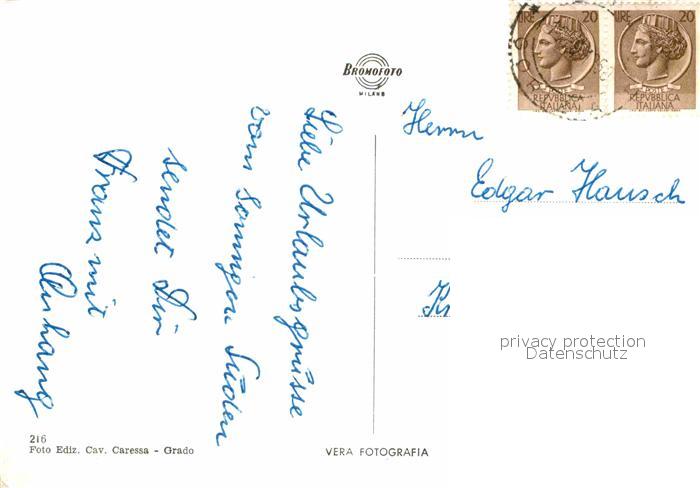 LIRE 20
POSTE
REPVBBLICA
ITALIANA
LIRE 20
POSTE
REPVBBLICA
ITALIANA
BROMOFOTO
MILANO
Liebe Urlaubsgrüsse
vom sonnigen Süden
sendet Dir
Franz mit
Anhang
Herrn
Edgar Hausch
privacy protection
Datenschutz
216
Foto Ediz. Cav. Caressa - Grado
VERA FOTOGRAFIA